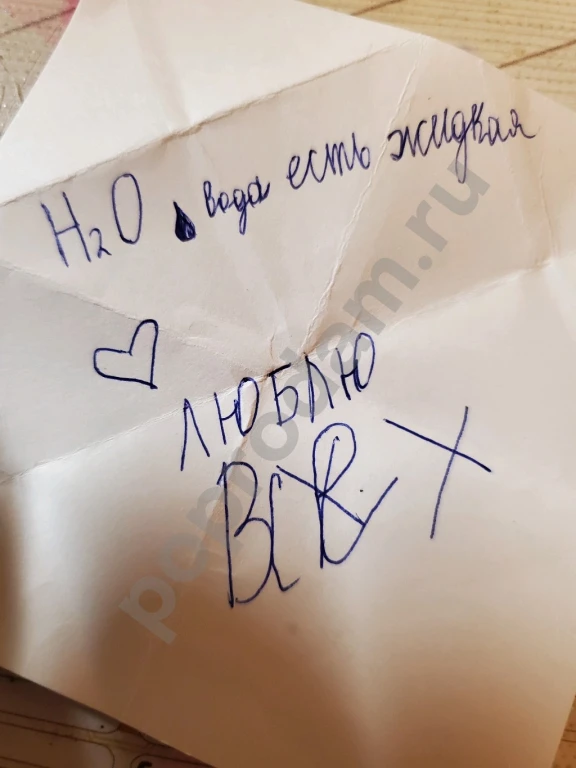 H₂O вода есть жидкая
ЛЮБЛЮ
ВСЕХ
poprodam.ru